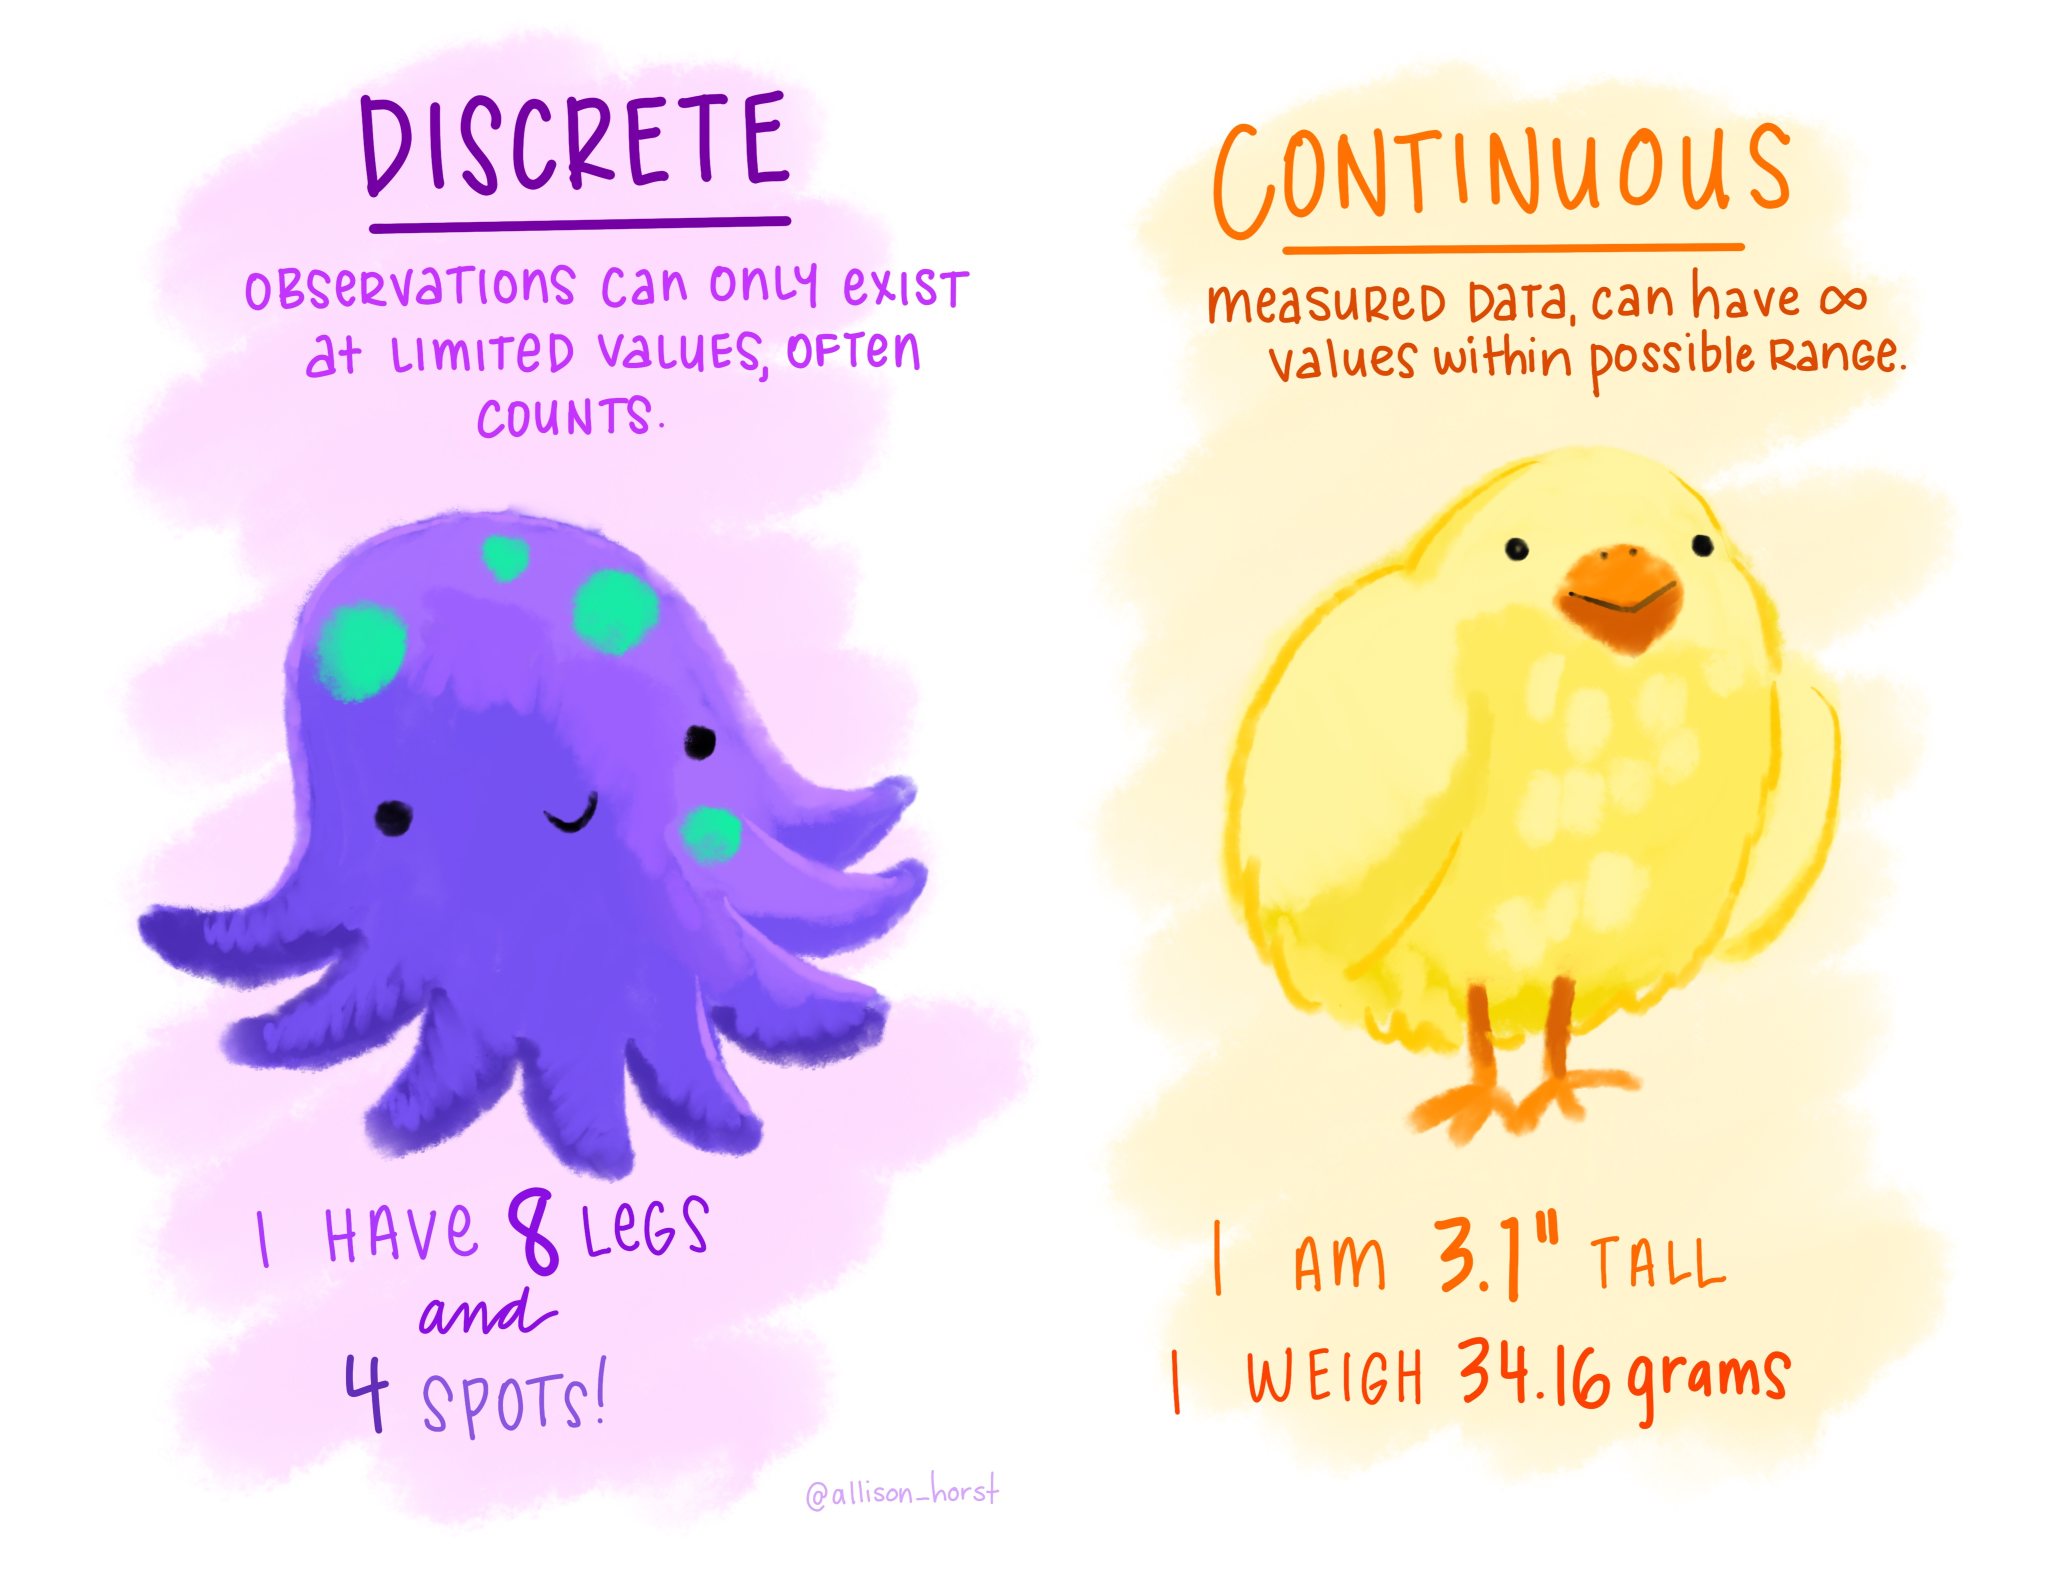 DISCRETE
OBSERVATIONS can ONLY EXIST
at LIMITED VALUES, OFTEN
COUNTS.
I HAVE 8 LEGS
and
4 SPOTS!
@allison_horst
CONTINUOUS
measured Data, can have ∞
values within possible Range.
I AM 3.1" TALL
I WEIGH 34.16 grams